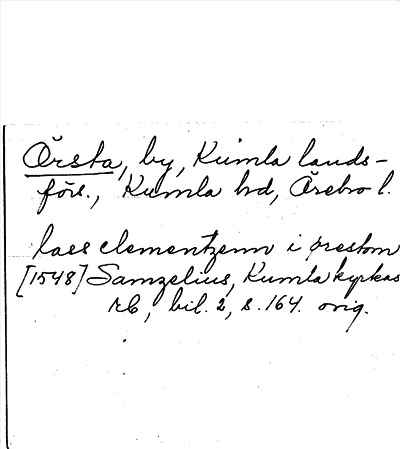 Örsta, by, Kumla lands-
förs., Kumla hd, Örebro l.
lass clementzenn i ørestom
[1548] Samzelius, Kumla kyrkas
rb, bil. 2, s. 164. orig.